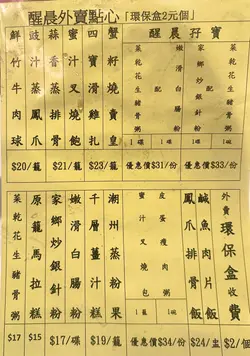 醒晨外賣點心「環保盒2元個」
鮮竹牛肉球
豉汁蒸鳳爪
蒜香蒸排骨
蜜汁叉燒飽
四寶滑雞札
蟹籽燒賣皇
$20/籠
$21/籠
$23/籠
醒晨孖寶
菜乾花生豬骨粥
嫩滑白腸粉
配
家鄉炒銀針粉
菜乾花生豬骨粥
1碟
1碗
1碟
1碗
優惠價$31/份
優惠價$33/份
菜乾花生豬骨粥
原籠馬拉糕
家鄉炒銀針粉
嫩滑白腸粉
千層薑汁糕
潮州蒸粉果
蜜汁叉燒包
配
皮蛋瘦肉粥
鳳爪排骨飯
鹹魚肉片飯
外賣環保盒收費
$17
$15
$17/碟
$19/籠
優惠價$34/份
$24/盅
$2/個